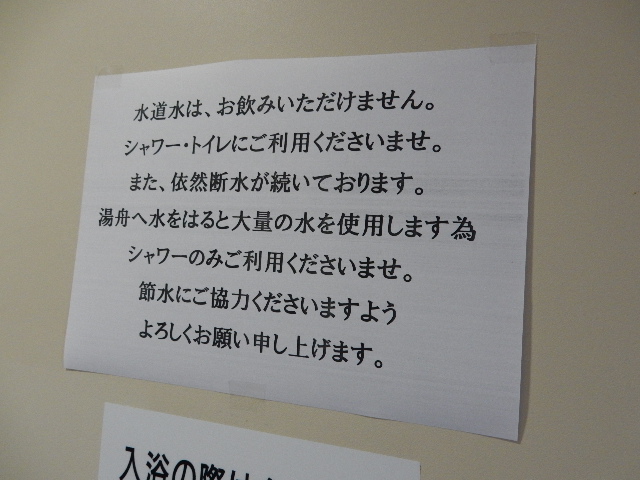 水道水は、お飲みいただけません。
シャワー・トイレにご利用くださいませ。
また、依然断水が続いております。
湯舟へ水をはると大量の水を使用します為
シャワーのみご利用くださいませ。
節水にご協力くださいますよう
よろしくお願い申し上げます。
入浴の際は